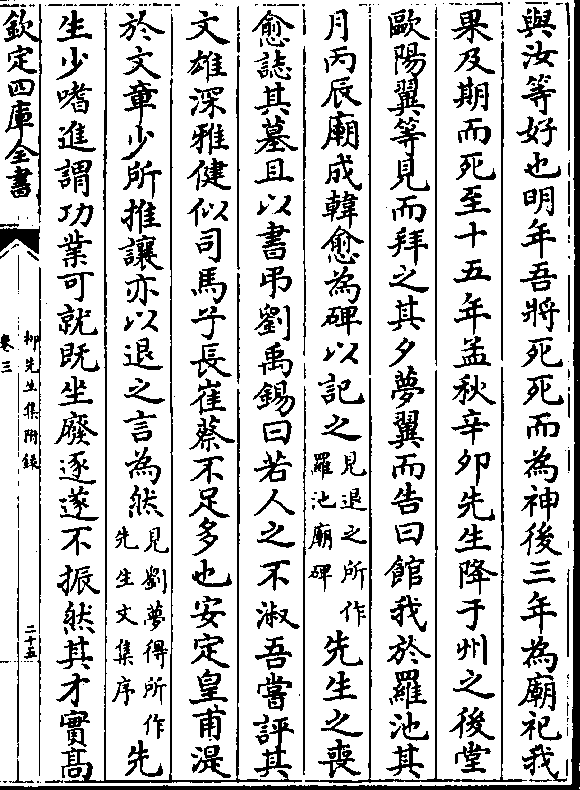 與汝等好也明年吾將死死而為神後三年為廟祀我
果及期而死至十五年孟秋辛卯先生降于州之後堂
歐陽翼等見而拜之其夕夢翼而告曰館我於羅池其
月丙辰廟成韓愈為碑以記之見退之所作羅池廟碑先生之喪
愈誌其墓且以書弔劉禹錫曰若人之不淑吾嘗評其
文雄深雅健似司馬子長崔蔡不足多也安定皇甫湜
於文章少所推讓亦以退之言為然見劉夢得所作先生文集序先
生少嗜進謂功業可就既坐廢逐遂不振然其才實高
欽定四庫全書
柳先生集附錄
卷三
二十五